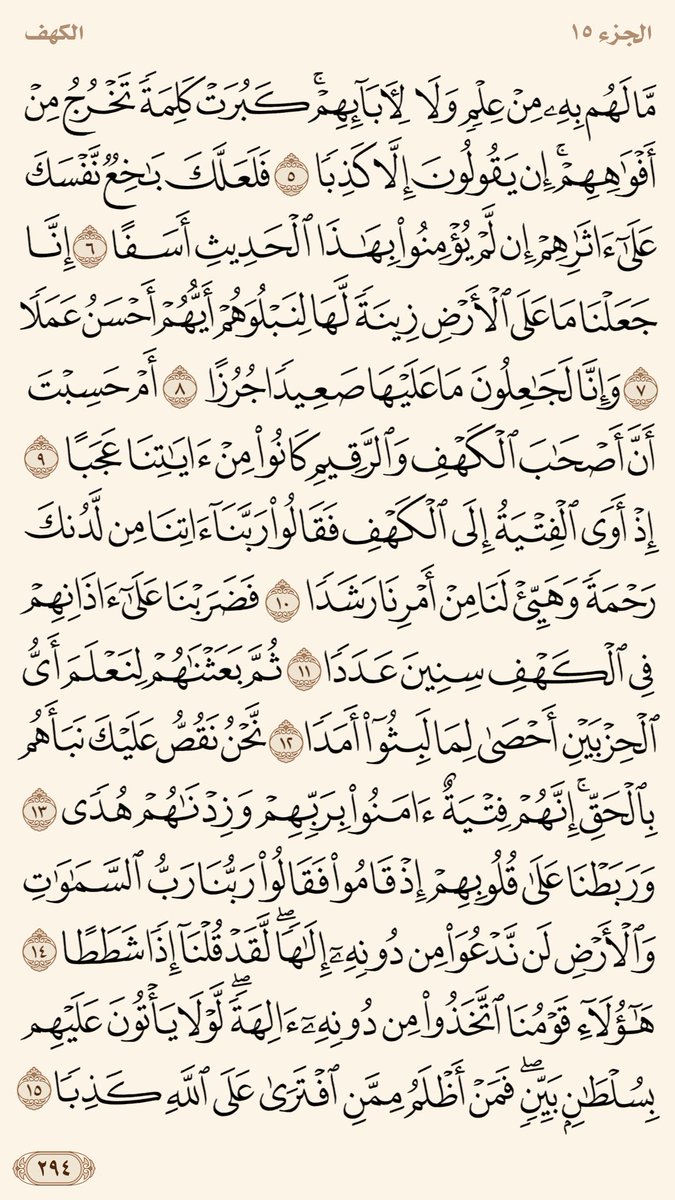 الجزء ١٥
الكهف
مَّا لَهُم بِهِۦ مِنْ عِلْمٍ وَلَا لِـَٔابَآئِهِمْ ۚ كَبُرَتْ كَلِمَةً تَخْرُجُ مِنْ
أَفْوَٰهِهِمْ ۚ إِن يَقُولُونَ إِلَّا كَذِبًا ٥ فَلَعَلَّكَ بَـٰخِعٌ نَّفْسَكَ
عَلَىٰٓ ءَاثَـٰرِهِمْ إِن لَّمْ يُؤْمِنُوا۟ بِهَـٰذَا ٱلْحَدِيثِ أَسَفًا ٦ إِنَّا
جَعَلْنَا مَا عَلَى ٱلْأَرْضِ زِينَةً لَّهَا لِنَبْلُوَهُمْ أَيُّهُمْ أَحْسَنُ عَمَلًا
٧ وَإِنَّا لَجَـٰعِلُونَ مَا عَلَيْهَا صَعِيدًا جُرُزًا ٨ أَمْ حَسِبْتَ
أَنَّ أَصْحَـٰبَ ٱلْكَهْفِ وَٱلرَّقِيمِ كَانُوا۟ مِنْ ءَايَـٰتِنَا عَجَبًا ٩
إِذْ أَوَى ٱلْفِتْيَةُ إِلَى ٱلْكَهْفِ فَقَالُوا۟ رَبَّنَآ ءَاتِنَا مِن لَّدُنكَ
رَحْمَةً وَهَيِّئْ لَنَا مِنْ أَمْرِنَا رَشَدًا ١٠ فَضَرَبْنَا عَلَىٰٓ ءَاذَانِهِمْ
فِى ٱلْكَهْفِ سِنِينَ عَدَدًا ١١ ثُمَّ بَعَثْنَـٰهُمْ لِنَعْلَمَ أَىُّ
ٱلْحِزْبَيْنِ أَحْصَىٰ لِمَا لَبِثُوٓا۟ أَمَدًا ١٢ نَّحْنُ نَقُصُّ عَلَيْكَ نَبَأَهُم
بِٱلْحَقِّ ۚ إِنَّهُمْ فِتْيَةٌ ءَامَنُوا۟ بِرَبِّهِمْ وَزِدْنَـٰهُمْ هُدًى ١٣
وَرَبَطْنَا عَلَىٰ قُلُوبِهِمْ إِذْ قَامُوا۟ فَقَالُوا۟ رَبُّنَا رَبُّ ٱلسَّمَـٰوَٰتِ
وَٱلْأَرْضِ لَن نَّدْعُوَا۟ مِن دُونِهِۦٓ إِلَـٰهًا ۖ لَّقَدْ قُلْنَآ إِذًا شَطَطًا ١٤
هَـٰٓؤُلَآءِ قَوْمُنَا ٱتَّخَذُوا۟ مِن دُونِهِۦٓ ءَالِهَةً ۖ لَّوْلَا يَأْتُونَ عَلَيْهِم
بِسُلْطَـٰنٍۭ بَيِّنٍ ۖ فَمَنْ أَظْلَمُ مِمَّنِ ٱفْتَرَىٰ عَلَى ٱللَّهِ كَذِبًا ١٥
٢٩٤